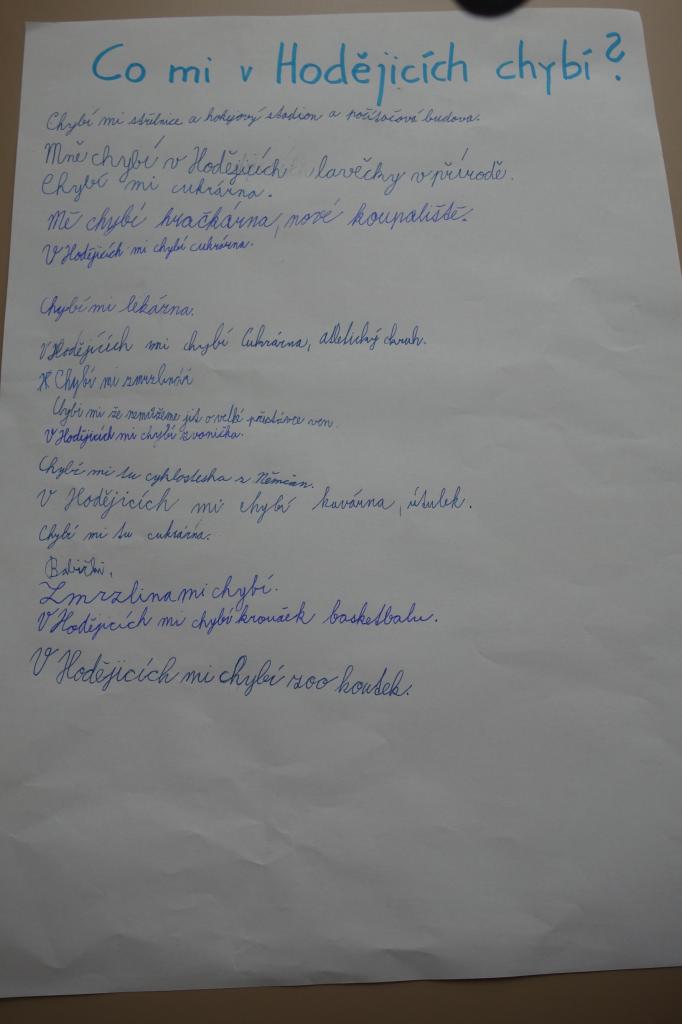 Co mi v Hodějicích chybí?
Chybí mi střelnice a hokejový stadion a počítačová budova.
Mně chybí v Hodějicích lavěčky v přírodě.
Chybí mi cukrárna.
Mě chybí hračkárna, nové koupaliště.
V Hodějicích mi chybí cukrárna.
Chybí mi lékárna.
V Hodějících mi chybí Cukrárna, atletický
Chybí mi zmrzlinář
Chybí mi že nemůžeme jít o velké přestávce ven.
V Hodějicích mi chybí zvonička.
Chybí mi tu cyklosteska z Němčan.
V Hodějicích mi chybí kavárna, útulek.
Chybí mi tu cukrárna.
Zmrzlina mi chybí.
V Hodějicích mi chybí kroužek basketbalu.
V Hodějicích mi chybí zoo koutek.